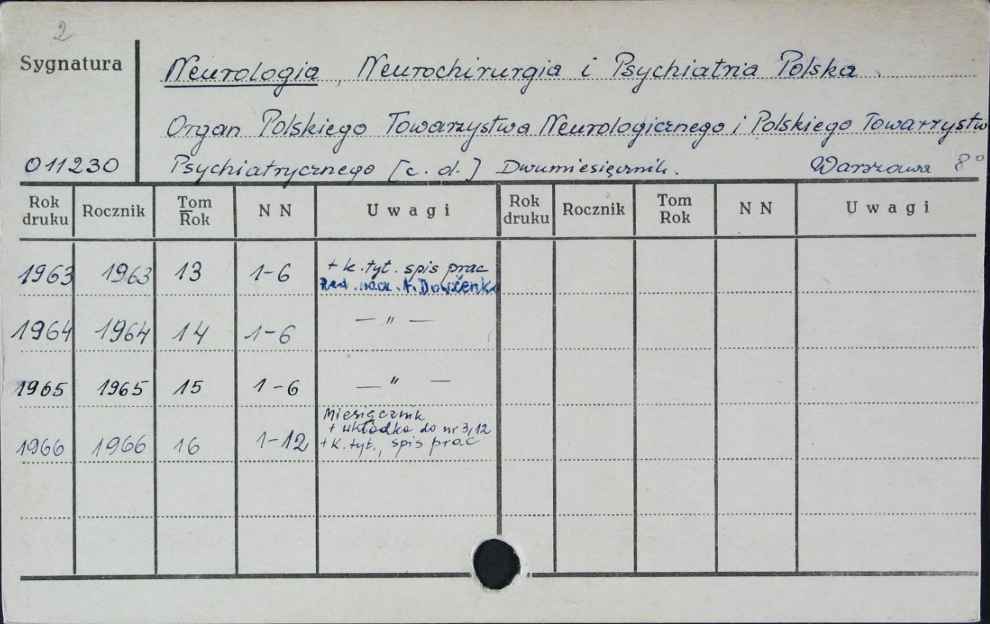 2
Sygnatura
Neurologia, Neurochirurgia i Psychiatria Polska.
Organ Polskiego Towarzystwa Neurologicznego i Polskiego Towarzystw
011230 Psychiatrycznego [c. d.] Dwumiesięcznik. Warszawa 8°
Rok druku Rocznik Tom Rok N N Uwagi Rok druku Rocznik Tom Rok N N Uwagi
1963 1963 13 1-6 + k. tyt. spis prac
Red. nacz. A. Dowżenko
1964 1964 14 1-6 — " —
1965 1965 15 1-6 — " —
Miesięcznik
+ wkładka do nr 3,12
1966 1966 16 1-12 + k. tyt., spis prac